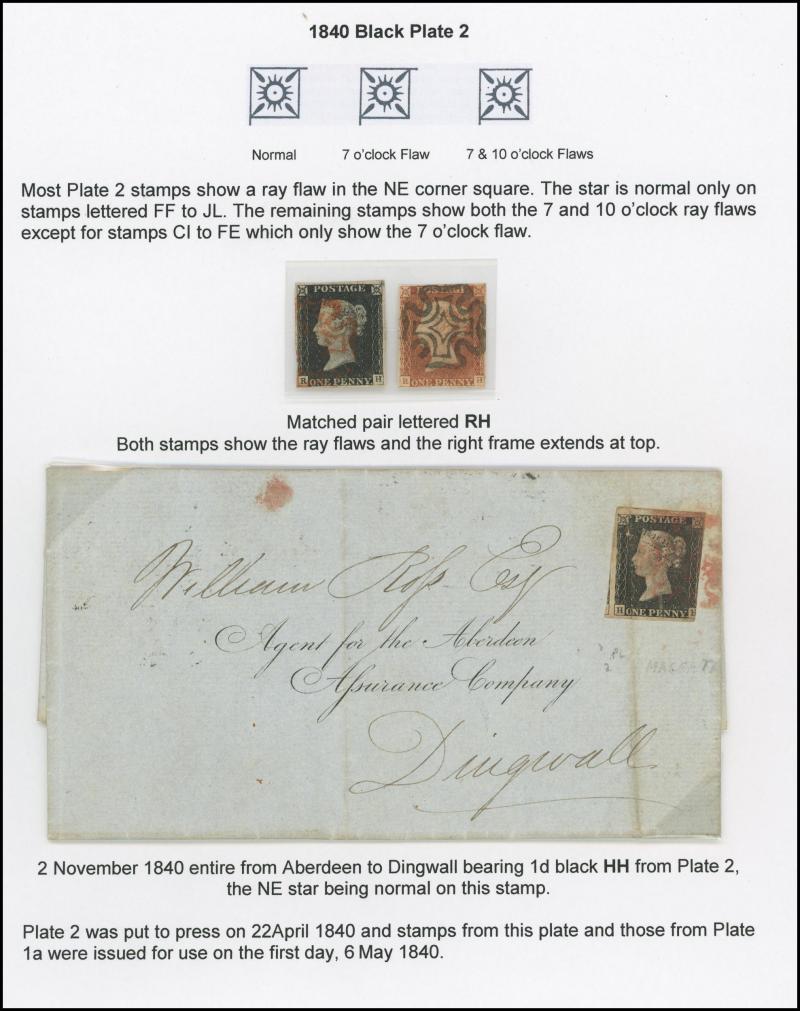 1840 Black Plate 2
Normal
7 o'clock Flaw
7 & 10 o'clock Flaws
Most Plate 2 stamps show a ray flaw in the NE corner square. The star is normal only on
stamps lettered FF to JL. The remaining stamps show both the 7 and 10 o'clock ray flaws
except for stamps CI to FE which only show the 7 o'clock flaw.
POSTAGE
R ONE PENNY H
R ONE PENNY H
Matched pair lettered RH
Both stamps show the ray flaws and the right frame extends at top.
POSTAGE
H ONE PENNY H
William Ross Esq
Agent for the Aberdeen
Assurance Company
Dingwall
PL
2
2 November 1840 entire from Aberdeen to Dingwall bearing 1d black HH from Plate 2,
the NE star being normal on this stamp.
Plate 2 was put to press on 22April 1840 and stamps from this plate and those from Plate
1a were issued for use on the first day, 6 May 1840.